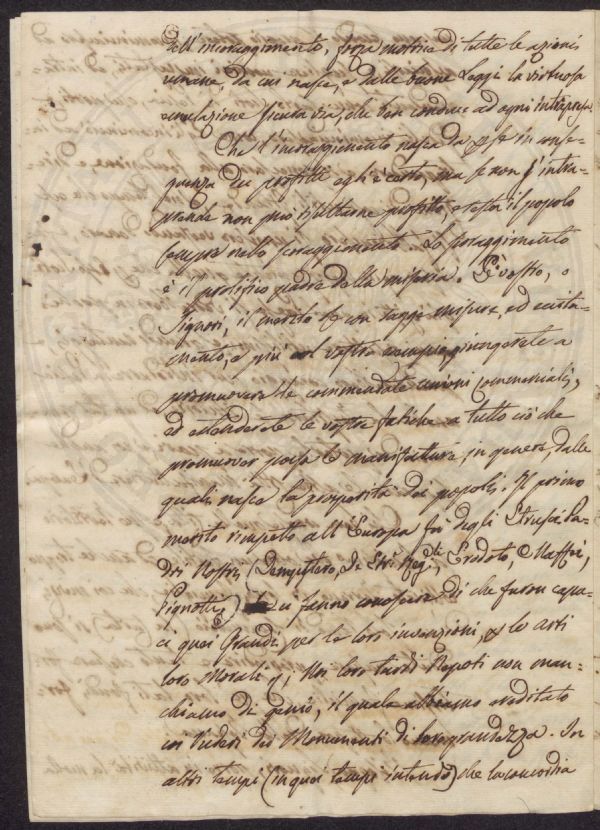 dell'incoraggimento, forza motrice di tutte le azioni
umane, da cui nasce, e dalle buone Leggi la virtuosa
emulazione sicura via, che ben conduce ad ogni intrapresa.
Che l'incoraggimento nasca da per se in conse-
guenza dei profitti egli è certo, ma se non s'intra-
prende non può risultarne profitto, e resta il popolo
sempre nello scoraggimento. Lo scoraggimento
è il prolifico padre della miseria. È vostro, o
Signori, il merito se con saggie misure, ed eccita-
mento, e più col vostro giungerete a
promuovere le commendate unioni commerciali,
ed estenderete le vostre fatiche a tutto ciò che
promuover possa le manifatture in genere, dalle
quali nasce la prosperità dei popoli. Il primo
merito rimpetto all'Europa fu degli Etrusci Pa-
dri Nostri, (Dempstero, De Etr. Reg.li, Erodoto, Maffei,
Pignotti) ci fanno conoscere di che furon capa-
ci quei Grandi per le loro invenzioni, per le arti
loro Morali, Noi loro tardi Nepoti non man-
chiamo di genio, il quale abbiamo ereditato
coi ruderi dei Monumenti di loro grandezza. In
altri tempi (in quei tempi intendo) che la concordia